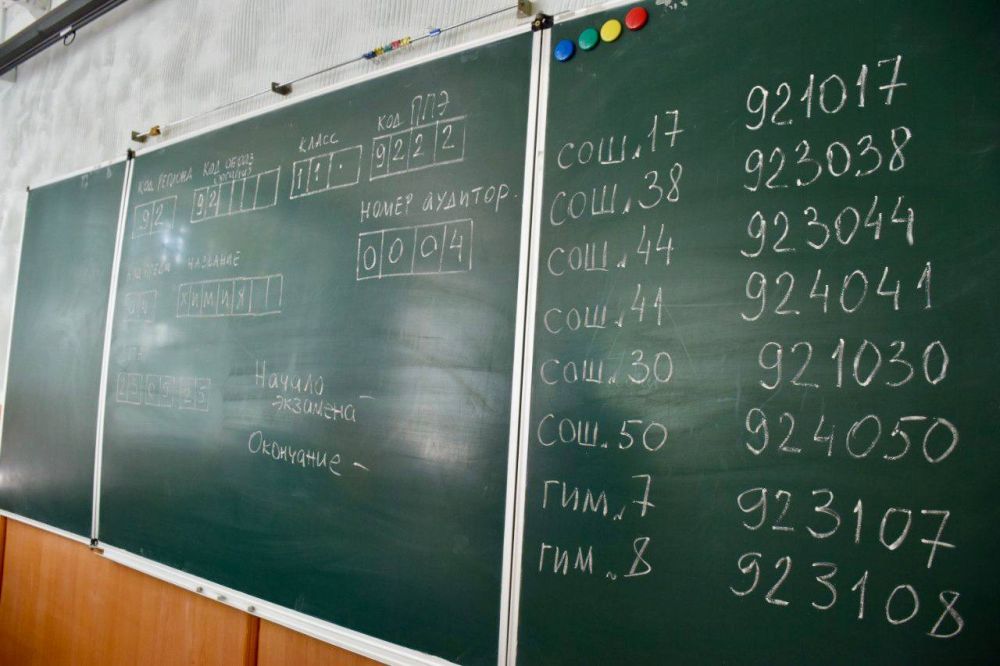 КОД РЕГИОНА КОД ОБРАЗ КЛАСС КОД ППЭ
92 92 11. 9222
НОМЕР АУДИТОР.
0004
НАЗВАНИЕ
ХИМИЯ
23 05 23
Начало
экзамена –
Окончание –
СОШ. 17 921017
СОШ. 38 923038
СОШ. 44 923044
СОШ. 41 924041
СОШ. 30 921030
СОШ. 50 924050
ГИМ. 7 923107
ГИМ. 8 923108